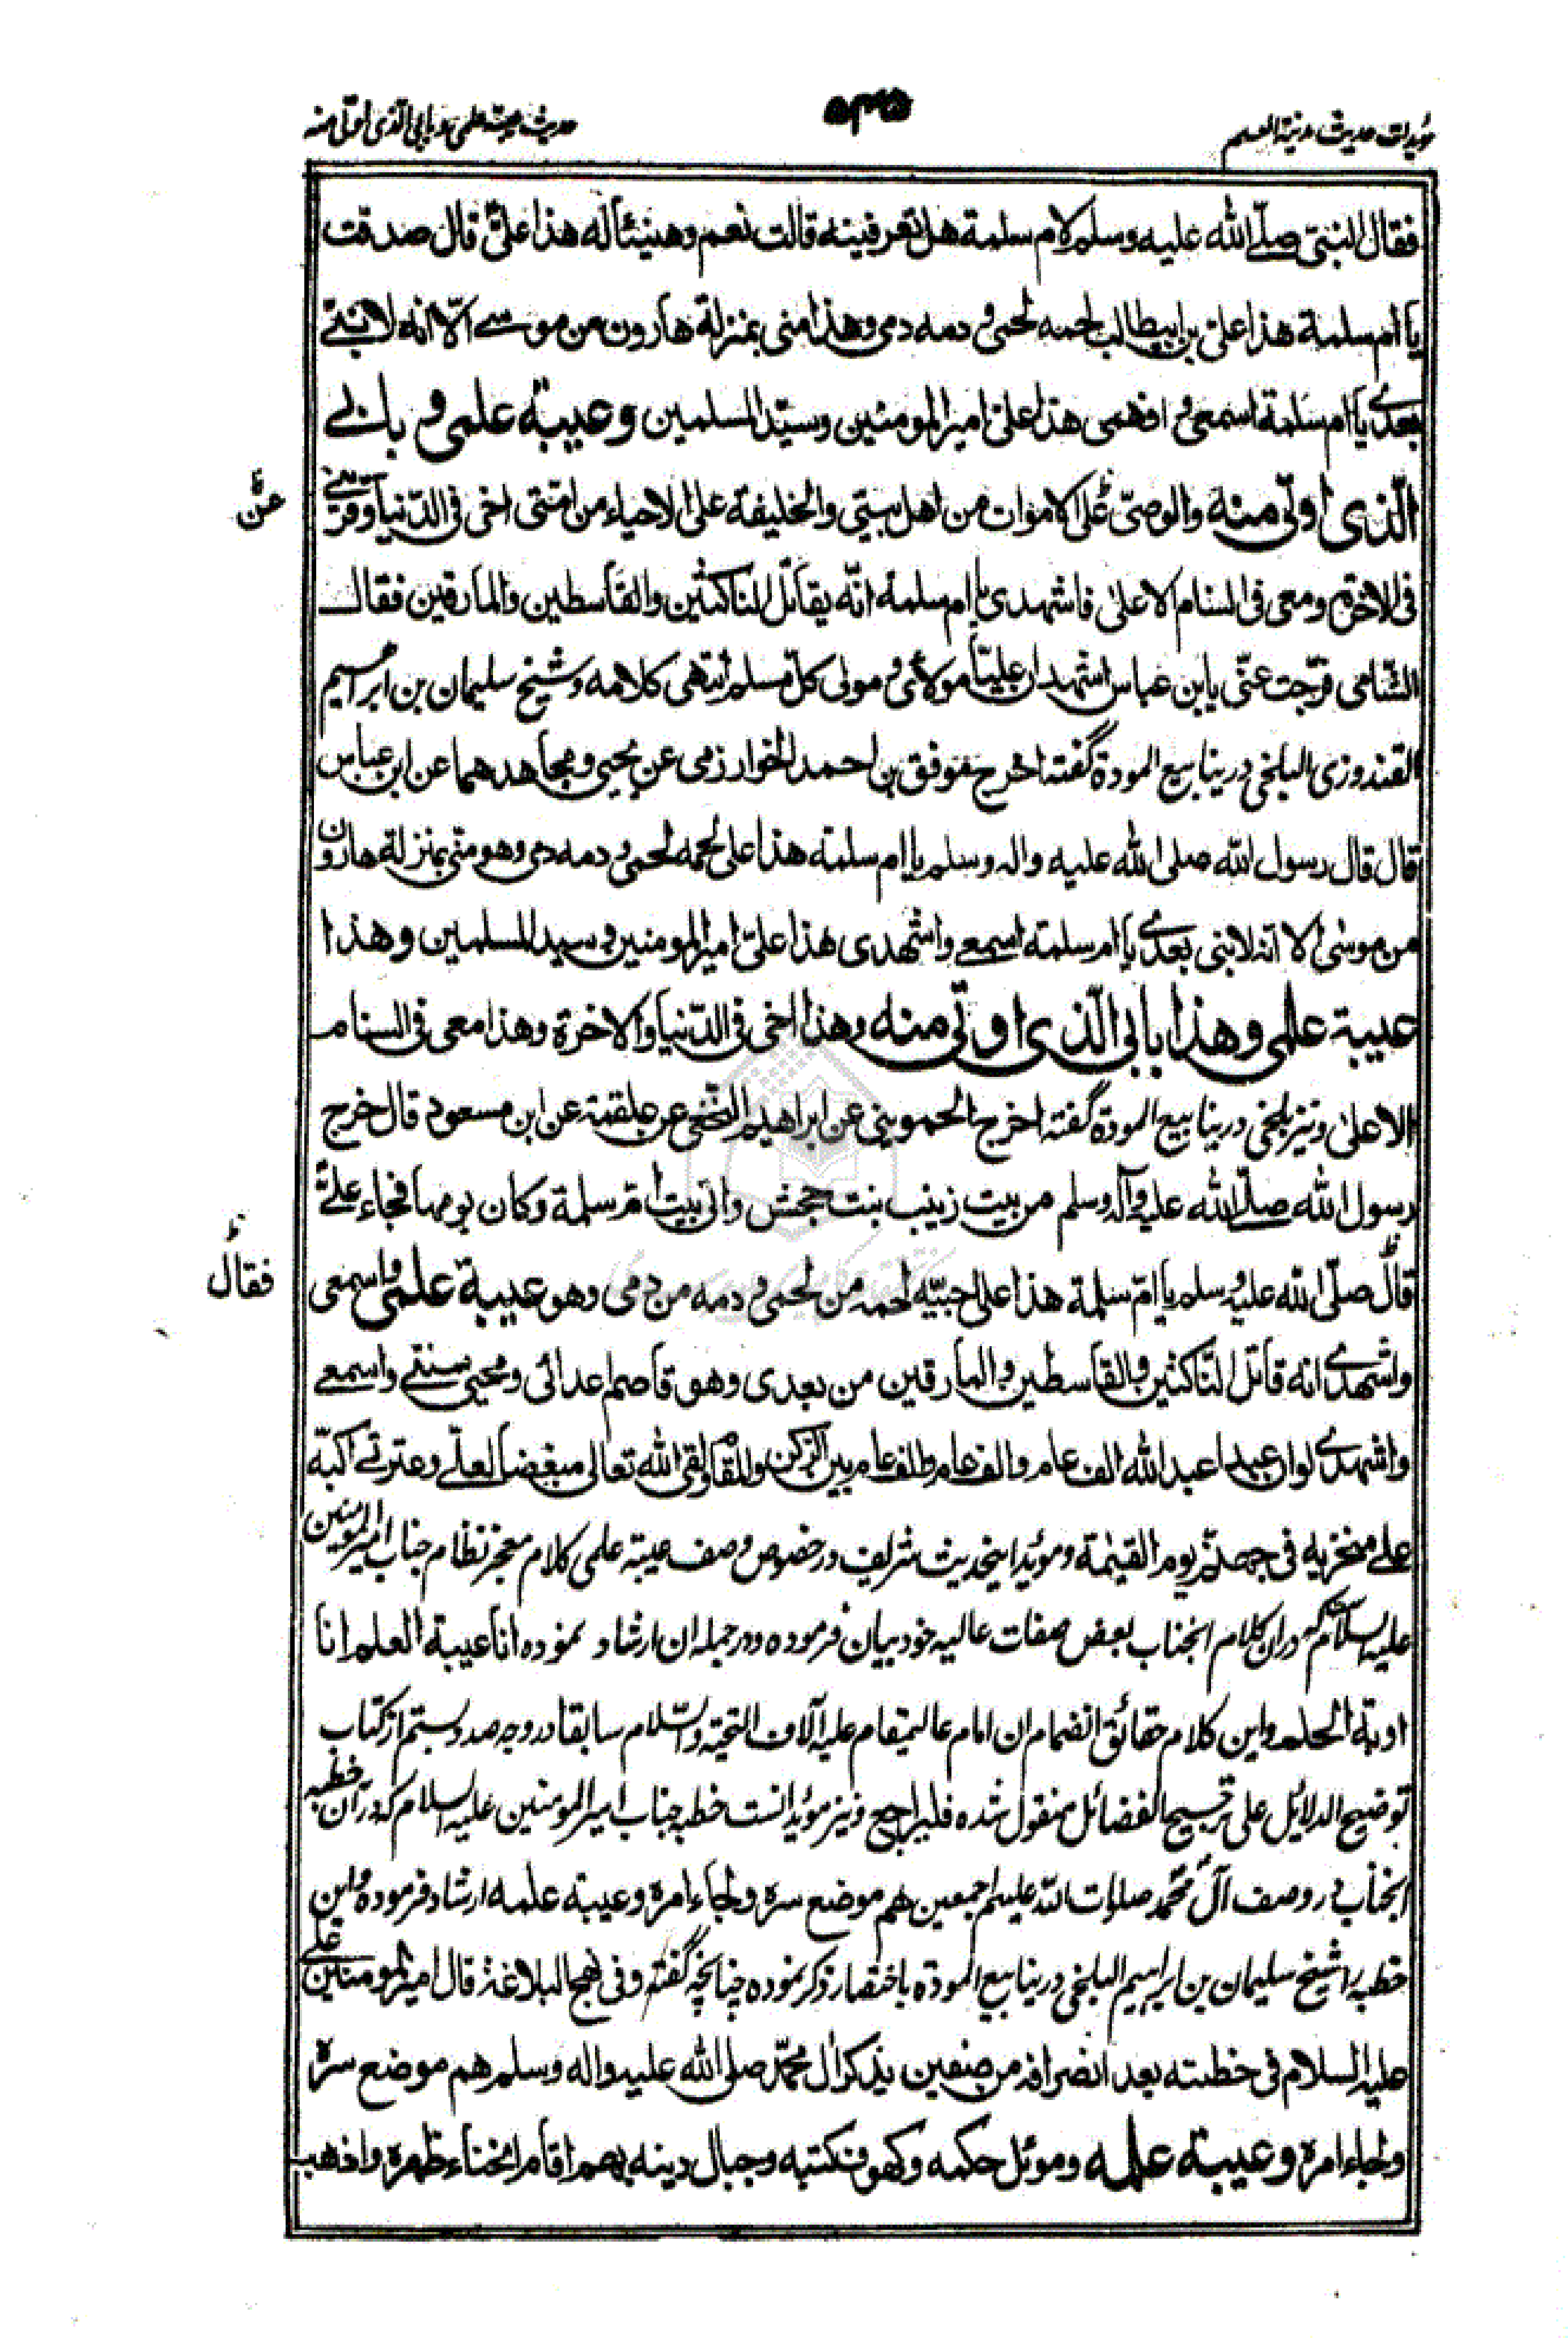 مؤیدات حدیث مدینة العلم
۵۳۵
حدیث عیبة علمی و بابی الذی اوتی منه
فقال النبیّ صلّے الله علیه وسلم لام سلمة هل تعرفینه قالت نعم وهنیئاً له هذا علیّ قال صدقت
یا ام سلمة هذا علی بن ابیطالب لحمه لحمی و دمه دمی وهذا منی بمنزلة هارون من موسے الّا انه لا نبیّ
بعدی یا ام سلمة اسمعی و افهمی هذا علی امیر المومنین وسیّد المسلمین وعیبة علمی و بابے
الّذی اوتی منه والوصیّ علی الاموات من اهل بیتی والخلیفة علی الاحیاء من امّتی اخی فی الدّنیا وقرینے
عن
فی الاخرة ومعی فی السنام الاعلی فاشهدی یا ام سلمة انّه یقاتل الناکثین والقاسطین والمارقین فقال
الشّامی فرّجت عنّی یا بن عباس اشهد ان علیّا مولای و مولی کلّ مسلم انتهی کلامه و شیخ سلیمان بن ابراهیم
القندوزی البلخی در ینابیع المودة گفته اخرج موفق بن احمد الخوارزمی عن یحیی و مجاهد هما عن ابن عباس
قال قال رسول الله صلی الله علیه واله وسلم یا ام سلمة هذا علی لحمه لحمی و دمه دمی وهو منّی بمنزلة هارون
من موسٰی الا انه لا نبی بعدی یا ام سلمة اسمعے واشهدی هذا علیّ امیر المومنین و سید المسلمین وهذا
عیبة علمی وهذا بابی الّذی اوتی منه وهذا اخی فی الدّنیا والاخرة وهذا معی فی السنام
الاعلیٰ ونیز بلخی در ینابیع المودة گفته اخرج الحموینی عن ابراهیم النخعی عن علقمة عن ابن مسعود قال خرج
رسول الله صلّے الله علیه وآله وسلم من بیت زینب بنت جحش واتی بیت امّ سلمة وکان یومها فجاء علیّ
فقال
قال صلّی الله علیه وسلم یا امّ سلمة هذا علی احبّیه لحمه من لحمی و دمه من دمی وهو عیبة علمی واسمعی
واشهدی انه قاتل النّاکثین والقاسطین والمارقین من بعدی وهو قاصم اعدائی ومحیی سنّتے واسمعے
واشهدی لو ان عبدا عبد الله الف عام والف عام والف عام بین الرّکن والمقام ولقی الله تعالی مبغضا لعلّے وعترتے اکبّه
علے منخریه فی جهنّم یوم القیٰمة ومؤید اینحدیث شریف در خصوص وصف عیبة علمی کلام معجز نظام جناب امیر المومنین
علیه السلام ست که دران کلام انجناب بعض صفات عالیه خود بیان فرموده و در جمله ان ارشاد نموده انا عیبة العلم انا
اوبة الحلم واین کلام حقائق انضمام ان امام عالیمقام علیه آلاف التحیّة والسّلام سابقا در وجه صد و بستم از کتاب
توضیح الدلائل علی ترجیح الفضائل منقول شده فلیراجع ونیز مؤید انست خطبه جناب امیر المومنین علیه السلام که در آن خطبه
انجناب در وصف آل محمّد صلوات الله علیهم اجمعین هم موضع سره ولجاء امره وعیبة علمه ارشاد فرموده و این
خطبه را شیخ سلیمان بن ابراهیم البلخی در ینابیع المودّة باختصار ذکر نموده چنانچه گفته وفی نهج البلاغة قال امیر المومنین علی
علیه السلام فی خطبته بعد انصرافه من صفین یذکر ال محمّد صلی الله علیه واله وسلم هم موضع سرّه
ولجاء امره وعیبة علمه وموئل حکمه وکهوف کتبه وجبال دینه بهم اقام انحناء ظهره واذهب